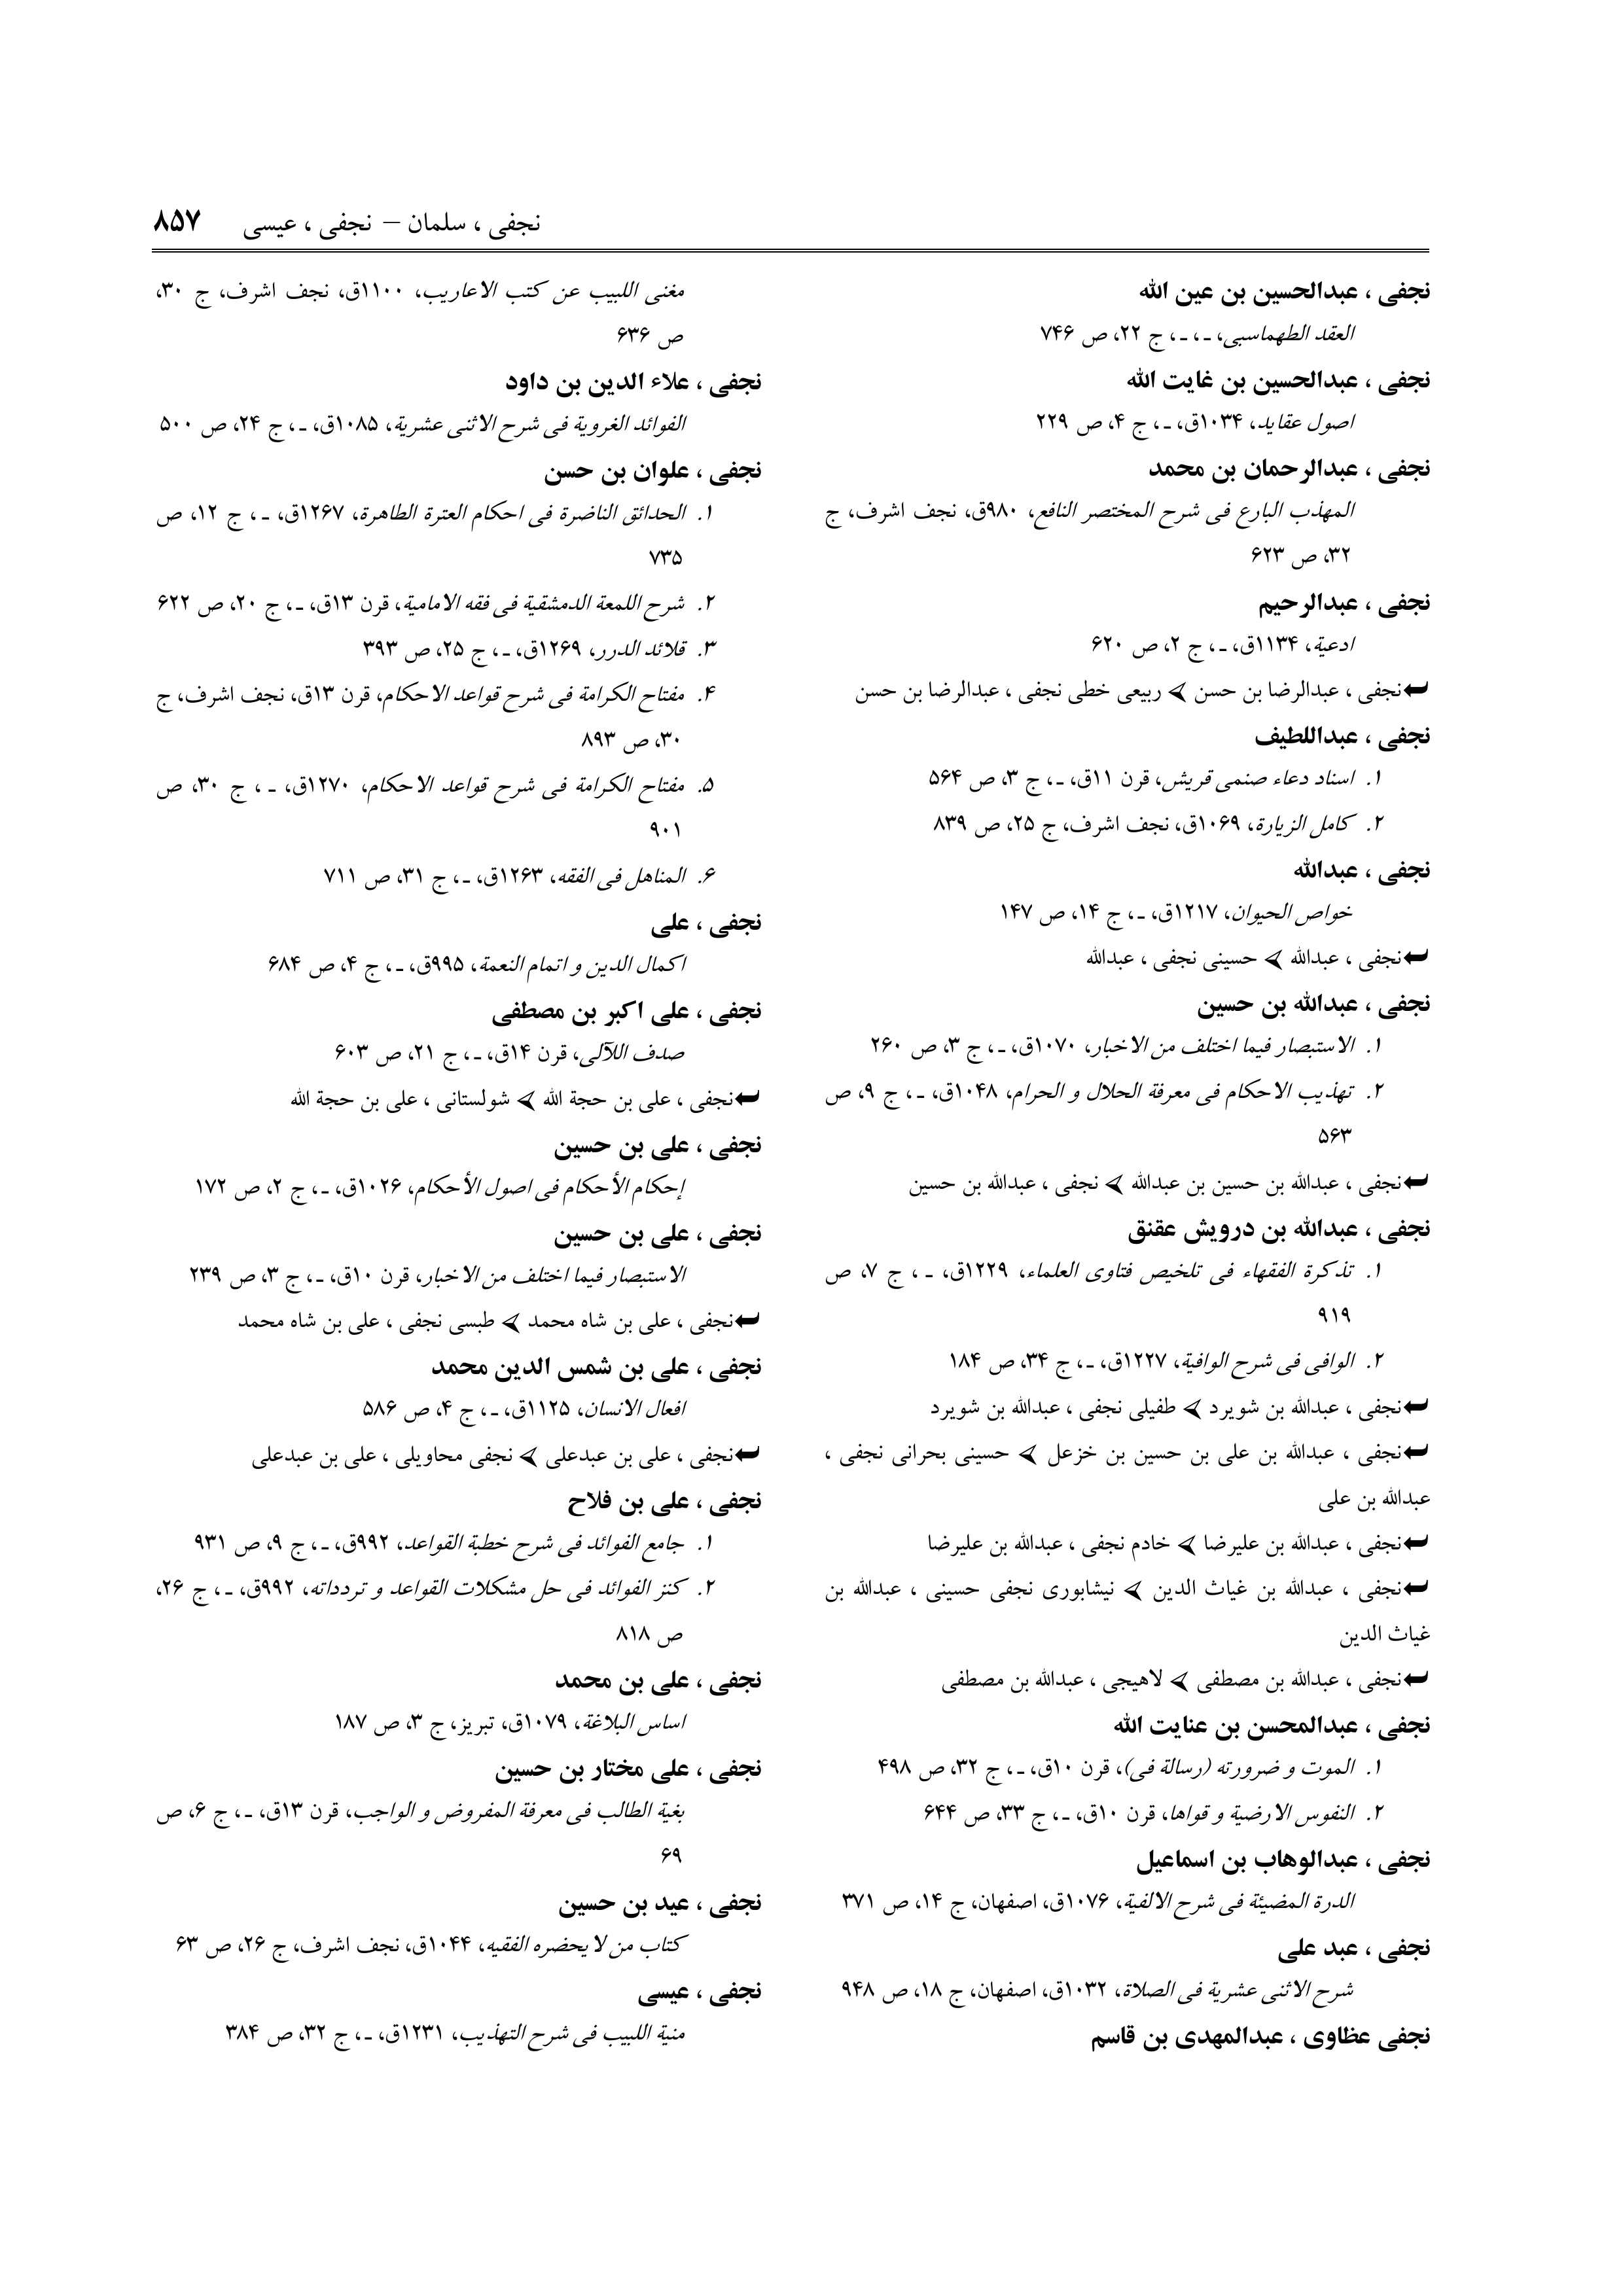 نجفی ، سلمان – نجفی ، عیسی ۸۵۷
نجفی ، عبدالحسین بن عین الله
العقد الطهماسبی، ـ، ـ، ج ۲۲، ص ۷۴۶
نجفی ، عبدالحسین بن غایت الله
اصول عقاید، ۱۰۳۴ق، ـ، ج ۴، ص ۲۲۹
نجفی ، عبدالرحمان بن محمد
المهذب البارع فی شرح المختصر النافع، ۹۸۰ق، نجف اشرف، ج
۳۲، ص ۶۲۳
نجفی ، عبدالرحیم
ادعیة، ۱۱۳۴ق، ـ، ج ۲، ص ۶۲۰
نجفی ، عبدالرضا بن حسن ⮜ ربیعی خطی نجفی ، عبدالرضا بن حسن
نجفی ، عبداللطیف
۱. اسناد دعاء صنمی قریش، قرن ۱۱ق، ـ، ج ۳، ص ۵۶۴
۲. کامل الزیارة، ۱۰۶۹ق، نجف اشرف، ج ۲۵، ص ۸۳۹
نجفی ، عبدالله
خواص الحیوان، ۱۲۱۷ق، ـ، ج ۱۴، ص ۱۴۷
نجفی ، عبدالله ⮜ حسینی نجفی ، عبدالله
نجفی ، عبدالله بن حسین
۱. الاستبصار فیما اختلف من الاخبار، ۱۰۷۰ق، ـ، ج ۳، ص ۲۶۰
۲. تهذیب الاحکام فی معرفة الحلال و الحرام، ۱۰۴۸ق، ـ، ج ۹، ص
۵۶۳
نجفی ، عبدالله بن حسین بن عبدالله ⮜ نجفی ، عبدالله بن حسین
نجفی ، عبدالله بن درویش عقنق
۱. تذکرة الفقهاء فی تلخیص فتاوی العلماء، ۱۲۲۹ق، ـ، ج ۷، ص
۹۱۹
۲. الوافی فی شرح الوافیة، ۱۲۲۷ق، ـ، ج ۳۴، ص ۱۸۴
نجفی ، عبدالله بن شویرد ⮜ طفیلی نجفی ، عبدالله بن شویرد
نجفی ، عبدالله بن علی بن حسین بن خزعل ⮜ حسینی بحرانی نجفی ،
عبدالله بن علی
نجفی ، عبدالله بن علیرضا ⮜ خادم نجفی ، عبدالله بن علیرضا
نجفی ، عبدالله بن غیاث الدین ⮜ نیشابوری نجفی حسینی ، عبدالله بن
غیاث الدین
نجفی ، عبدالله بن مصطفی ⮜ لاهیجی ، عبدالله بن مصطفی
نجفی ، عبدالمحسن بن عنایت الله
۱. الموت و ضرورته (رسالة فی)، قرن ۱۰ق، ـ، ج ۳۲، ص ۴۹۸
۲. النفوس الارضیة و قواها، قرن ۱۰ق، ـ، ج ۳۳، ص ۶۴۴
نجفی ، عبدالوهاب بن اسماعیل
الدرة المضیئة فی شرح الالفیة، ۱۰۷۶ق، اصفهان، ج ۱۴، ص ۳۷۱
نجفی ، عبد علی
شرح الاثنی عشریة فی الصلاة، ۱۰۳۲ق، اصفهان، ج ۱۸، ص ۹۴۸
نجفی عظاوی ، عبدالمهدی بن قاسم
مغنی اللبیب عن کتب الاعاریب، ۱۱۰۰ق، نجف اشرف، ج ۳۰،
ص ۶۳۶
نجفی ، علاء الدین بن داود
الفوائد الغرویة فی شرح الاثنی عشریة، ۱۰۸۵ق، ـ، ج ۲۴، ص ۵۰۰
نجفی ، علوان بن حسن
۱. الحدائق الناضرة فی احکام العترة الطاهرة، ۱۲۶۷ق، ـ، ج ۱۲، ص
۷۳۵
۲. شرح اللمعة الدمشقیة فی فقه الامامیة، قرن ۱۳ق، ـ، ج ۲۰، ص ۶۲۲
۳. قلائد الدرر، ۱۲۶۹ق، ـ، ج ۲۵، ص ۳۹۳
۴. مفتاح الکرامة فی شرح قواعد الاحکام، قرن ۱۳ق، نجف اشرف، ج
۳۰، ص ۸۹۳
۵. مفتاح الکرامة فی شرح قواعد الاحکام، ۱۲۷۰ق، ـ، ج ۳۰، ص
۹۰۱
۶. المناهل فی الفقه، ۱۲۶۳ق، ـ، ج ۳۱، ص ۷۱۱
نجفی ، علی
اکمال الدین و اتمام النعمة، ۹۹۵ق، ـ، ج ۴، ص ۶۸۴
نجفی ، علی اکبر بن مصطفی
صدف اللآلی، قرن ۱۴ق، ـ، ج ۲۱، ص ۶۰۳
نجفی ، علی بن حجة الله ⮜ شولستانی ، علی بن حجة الله
نجفی ، علی بن حسین
إحکام الأحکام فی اصول الأحکام، ۱۰۲۶ق، ـ، ج ۲، ص ۱۷۲
نجفی ، علی بن حسین
الاستبصار فیما اختلف من الاخبار، قرن ۱۰ق، ـ، ج ۳، ص ۲۳۹
نجفی ، علی بن شاه محمد ⮜ طبسی نجفی ، علی بن شاه محمد
نجفی ، علی بن شمس الدین محمد
افعال الانسان، ۱۱۲۵ق، ـ، ج ۴، ص ۵۸۶
نجفی ، علی بن عبدعلی ⮜ نجفی محاویلی ، علی بن عبدعلی
نجفی ، علی بن فلاح
۱. جامع الفوائد فی شرح خطبة القواعد، ۹۹۲ق، ـ، ج ۹، ص ۹۳۱
۲. کنز الفوائد فی حل مشکلات القواعد و تردداته، ۹۹۲ق، ـ، ج ۲۶،
ص ۸۱۸
نجفی ، علی بن محمد
اساس البلاغة، ۱۰۷۹ق، تبریز، ج ۳، ص ۱۸۷
نجفی ، علی مختار بن حسین
بغیة الطالب فی معرفة المفروض و الواجب، قرن ۱۳ق، ـ، ج ۶، ص
۶۹
نجفی ، عید بن حسین
کتاب من لا یحضره الفقیه، ۱۰۴۴ق، نجف اشرف، ج ۲۶، ص ۶۳
نجفی ، عیسی
منیة اللبیب فی شرح التهذیب، ۱۲۳۱ق، ـ، ج ۳۲، ص ۳۸۴